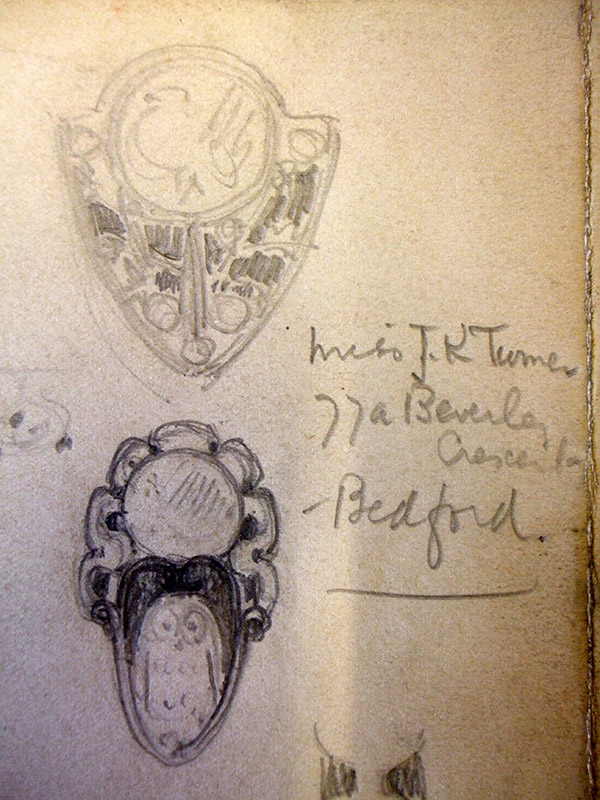 Miss J. K Turner
77a Beverley
Crescent
Bedford.